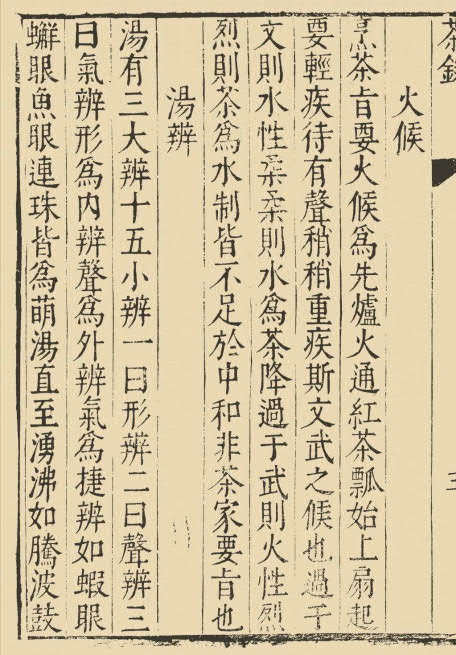 茶錄
火候
烹茶旨要火候爲先爐火通紅茶瓢始上扇起
要輕疾待有聲稍稍重疾斯文武之候也過于
文則水性柔柔則水爲茶降過于武則火性烈
烈則茶爲水制皆不足於中和非茶家要旨也
湯辨
湯有三大辨十五小辨一曰形辨二曰聲辨三
曰氣辨形爲內辨聲爲外辨氣爲捷辨如蝦眼
蠏眼魚眼連珠皆爲萌湯直至湧沸如騰波鼓